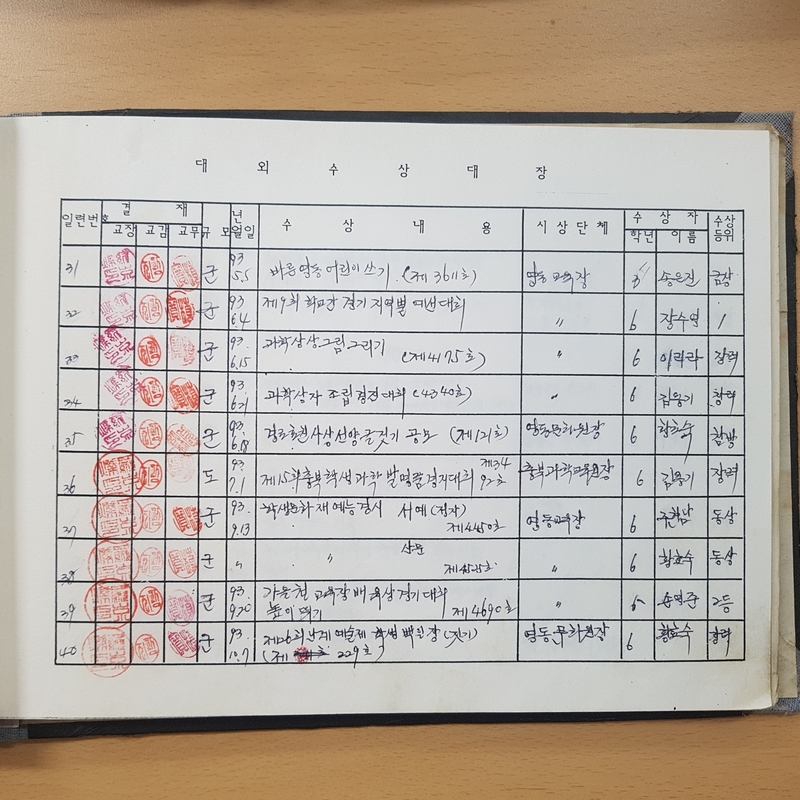 대 외 수 상 대 장
일련번호 결 재 규모 년월일 수 상 내 용 시상단체 수 상 자 수상등위
교장 교감 교무 학년 이름
31 군 93 5.5 바른 영동 어린이 쓰기 (제3611호) 영동교육장 3 송은진 금상
32 군 93 6.4 제9회 학교간 경기 지역별 예선대회 〃 6 장수연 1
33 군 93. 6.15 과학상상그림그리기 (제4175호) 〃 6 이라라 장려
34 군 93. 6.21 과학상자 조립경진대회 (4340호) 〃 6 김용기 장려
35 군 93. 6.18 경로효친사상선양글짓기 공모 (제121호) 영동문화원장 6 황효숙 참방
36 도 93 7.1 제15회 충북학생과학발명품경진대회 제3492호 충북과학교육원장 6 김용기 장려
37 군 93. 9.13 학생문화재예능경시 서예 (정자) 제4450호 영동교육장 6 동상
38 군 〃 〃 산문 〃 6 황효숙 동상
39 군 93. 9.20 가을철 교육장배 육상경기대회 높이뛰기 제4690호 〃 2등
40 군 93. 10.7 제26회 난계예술제 학생백일장 (짓기) (제 229호) 영동문화원장 6 황효숙 장려